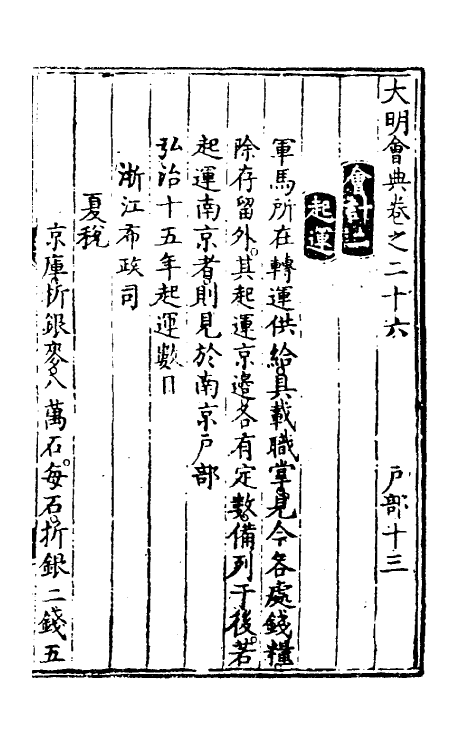 大明會典卷之二十六　戶部十三
會計二
起運
軍馬所在轉運供給具載職掌見今各處錢糧
除存留外其起運京邊各有定數備列于後若
起運南京者則見於南京戶部
弘治十五年起運數目
浙江布政司
夏稅
京庫折銀麥八萬石每石折銀二錢五